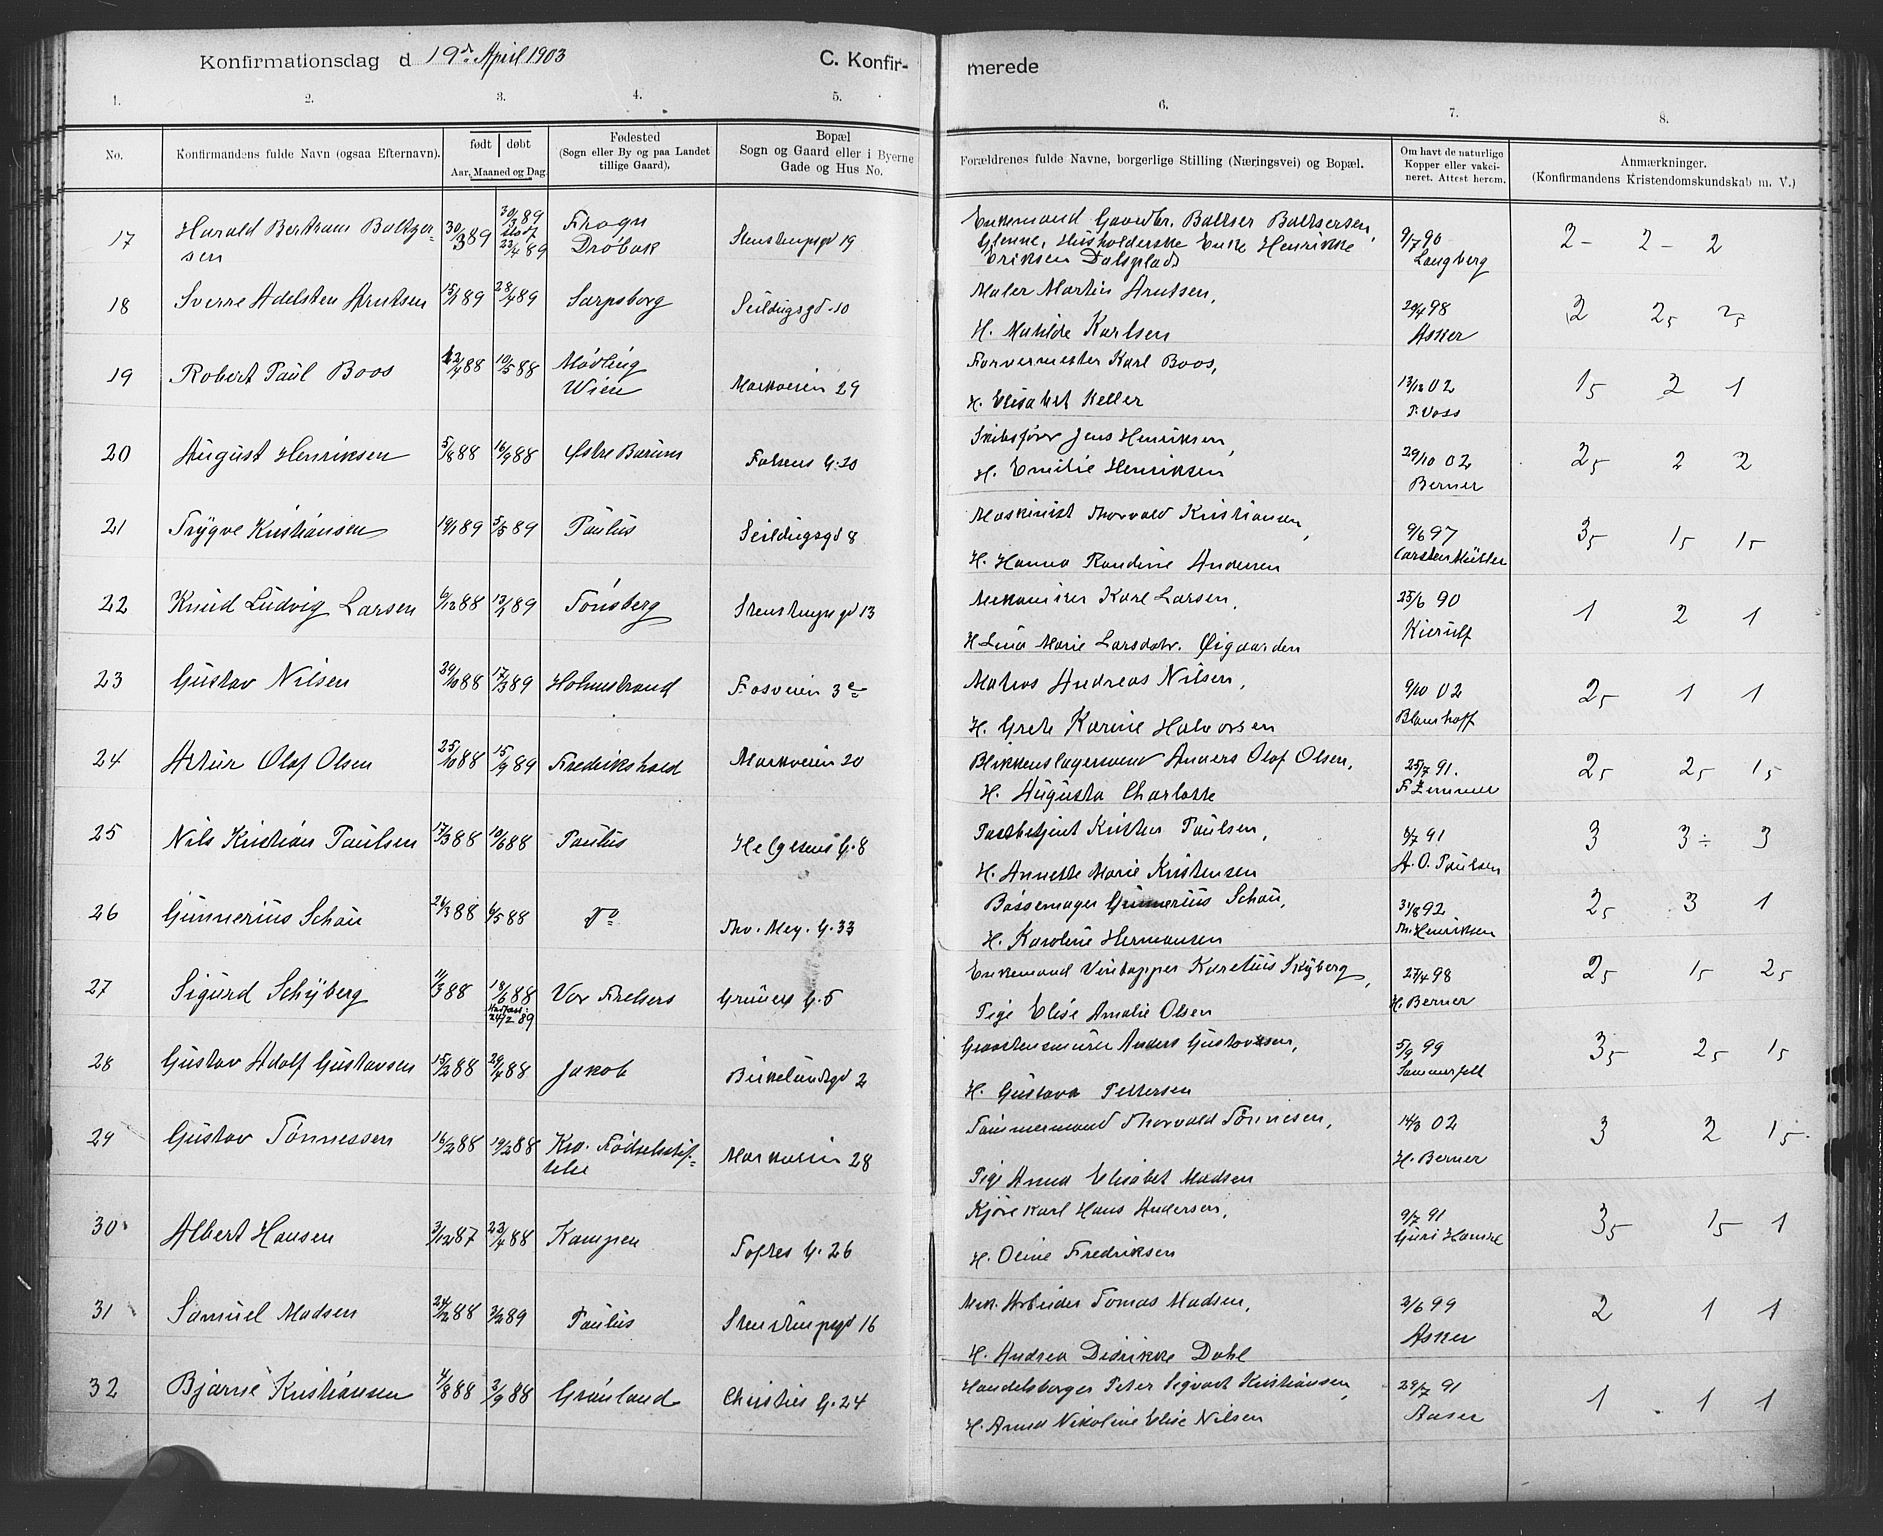 Konfirmationsdag d 19de April 1903
C. Konfir- merede
1. 2. 3. 4. 5. 6. 7. 8.
No.
Konfirmandens fulde Navn (ogsaa Efternavn).
født døbt
Aar, Maaned og Dag.
Fødested
(Sogn eller By og paa Landet
tillige Gaard).
Bopæl
Sogn og Gaard eller i Byerne
Gade og Hus No.
Forældrenes fulde Navne, borgerlige Stilling (Næringsvei) og Bopæl.
Om havt de naturlige
Kopper eller vakci-
neret. Attest herom.
Anmærkninger.
(Konfirmandens Kristendomskundskab m. V.)
17 Harald Bertram Baltzer-
sen
30/3 89
30/3 89
23/4 89
Frogn
Drøbak
Stenstrupsgd 19
Enkemand Gaardbr. Baltser Baltsersen,
Glenne, Husholderske Enke Henrikke
Eriksen Dalsplads
9/7 90
Langberg
2- 2- 2
18 Sverre Adelsten Arntsen 15/1 89 28/4 89 Sarpsborg Seildugsgd 10
Maler Martin Arntsen,
H. Matilde Karlsen
29/4 98
Asker
2 25 25
19 Robert Paul Boos 12/4 88 10/5 88 Mödling
Wien
Markveien 29
Farvermester Karl Boos,
H. Elisabet Keller
13/12 02
P. Voss
15 2 1
20 August Henriksen 5/8 88 16/9 88 Østre Bærum Falsens G. 20
Skibsfører Jens Henriksen,
H. Emilie Henriksen
29/10 02
Berner
25 2 2
21 Trygve Kristiansen 19/1 89 5/5 89 Paulus Seildugsgd 8
Maskinist Thorvald Kristiansen,
H. Hanna Randine Andersen
9/6 97
Carsten Müller
35 15 15
22 Knud Ludvig Larsen 6/12 88 13/1 89 Tønsberg Stenstrupsgd 13
Mekaniker Karl Larsen,
H. Lina Marie Larsdatr. Øigaarden
25/6 90
Kierulf
1 2 1
23 Gustav Nilsen 29/10 88 17/3 89 Holmestrand Fosveien 3c
Matros Andreas Nilsen,
H. Grete Karine Halvorsen
9/10 02
Blomhoff
25 1 1
24 Artur Olaf Olsen 25/10 88 15/9 89 Fredrikshald Markveien 20
Blikkenslagersvend Anders Olaf Olsen,
H. Augusta Charlotte
25/7 91.
F. Zimmer
25 25 15
25 Nils Kristian Paulsen 17/3 88 10/6 88 Paulus Helgesens G. 8
Postbetjent Kristen Paulsen,
H. Annette Marie Kristensen
3/7 91
A. O. Paulsen
3 3÷ 3
26 Gunnerius Schau 26/3 88 6/5 88 Do Thv. Mey. G. 33
Bøssemager Gunnerius Schau,
H. Karoline Hermansen
31/8 92
Th. Henriksen
25 3 1
27 Sigurd Schyberg 11/3 88 18/6 88
24/2 89
Vor Frelsers Grüners G. 5
Enkemand Vintapper Karelius Skyberg,
Pige Elise Amalie Olsen
27/4 98
H. Berner
25 15 25
28 Gustav Adolf Gustavsen 15/2 88 29/4 88 Jakob Birkelundsgd 2
Graastensmurer Anders Gustavsen,
H. Gustava Pettersen
5/9 99
Sommerfelt
35 25 15
29 Gustav Tønnessen 16/2 88 19/2 88 Kra. Fødselsstif-
telse
Markveien 28
Tømmermand Thorvald Tønnesen,
Pige Anna Elisabet Madsen
14/3 02
H. Berner
3 2 15
30 Albert Hansen 3/12 87 22/4 88 Kampen Toftes G. 26
Kjørekarl Hans Andersen,
H. Oline Fredriksen
9/7 91
35 15 1
31 Samuel Madsen 24/12 88 3/2 89 Paulus Stenstrupsgd 16
Mek. Arbeider Tomas Madsen,
H. Andrea Didrikke Dahl
2/6 99
Asker
2 1 1
32 Bjarne Kristiansen 4/8 88 2/9 88 Grønland Christies G. 24
Handelsborger Peter Sigvart Kristiansen,
H. Anna Nikoline Elise Nilsen
29/7 91
1 1 1